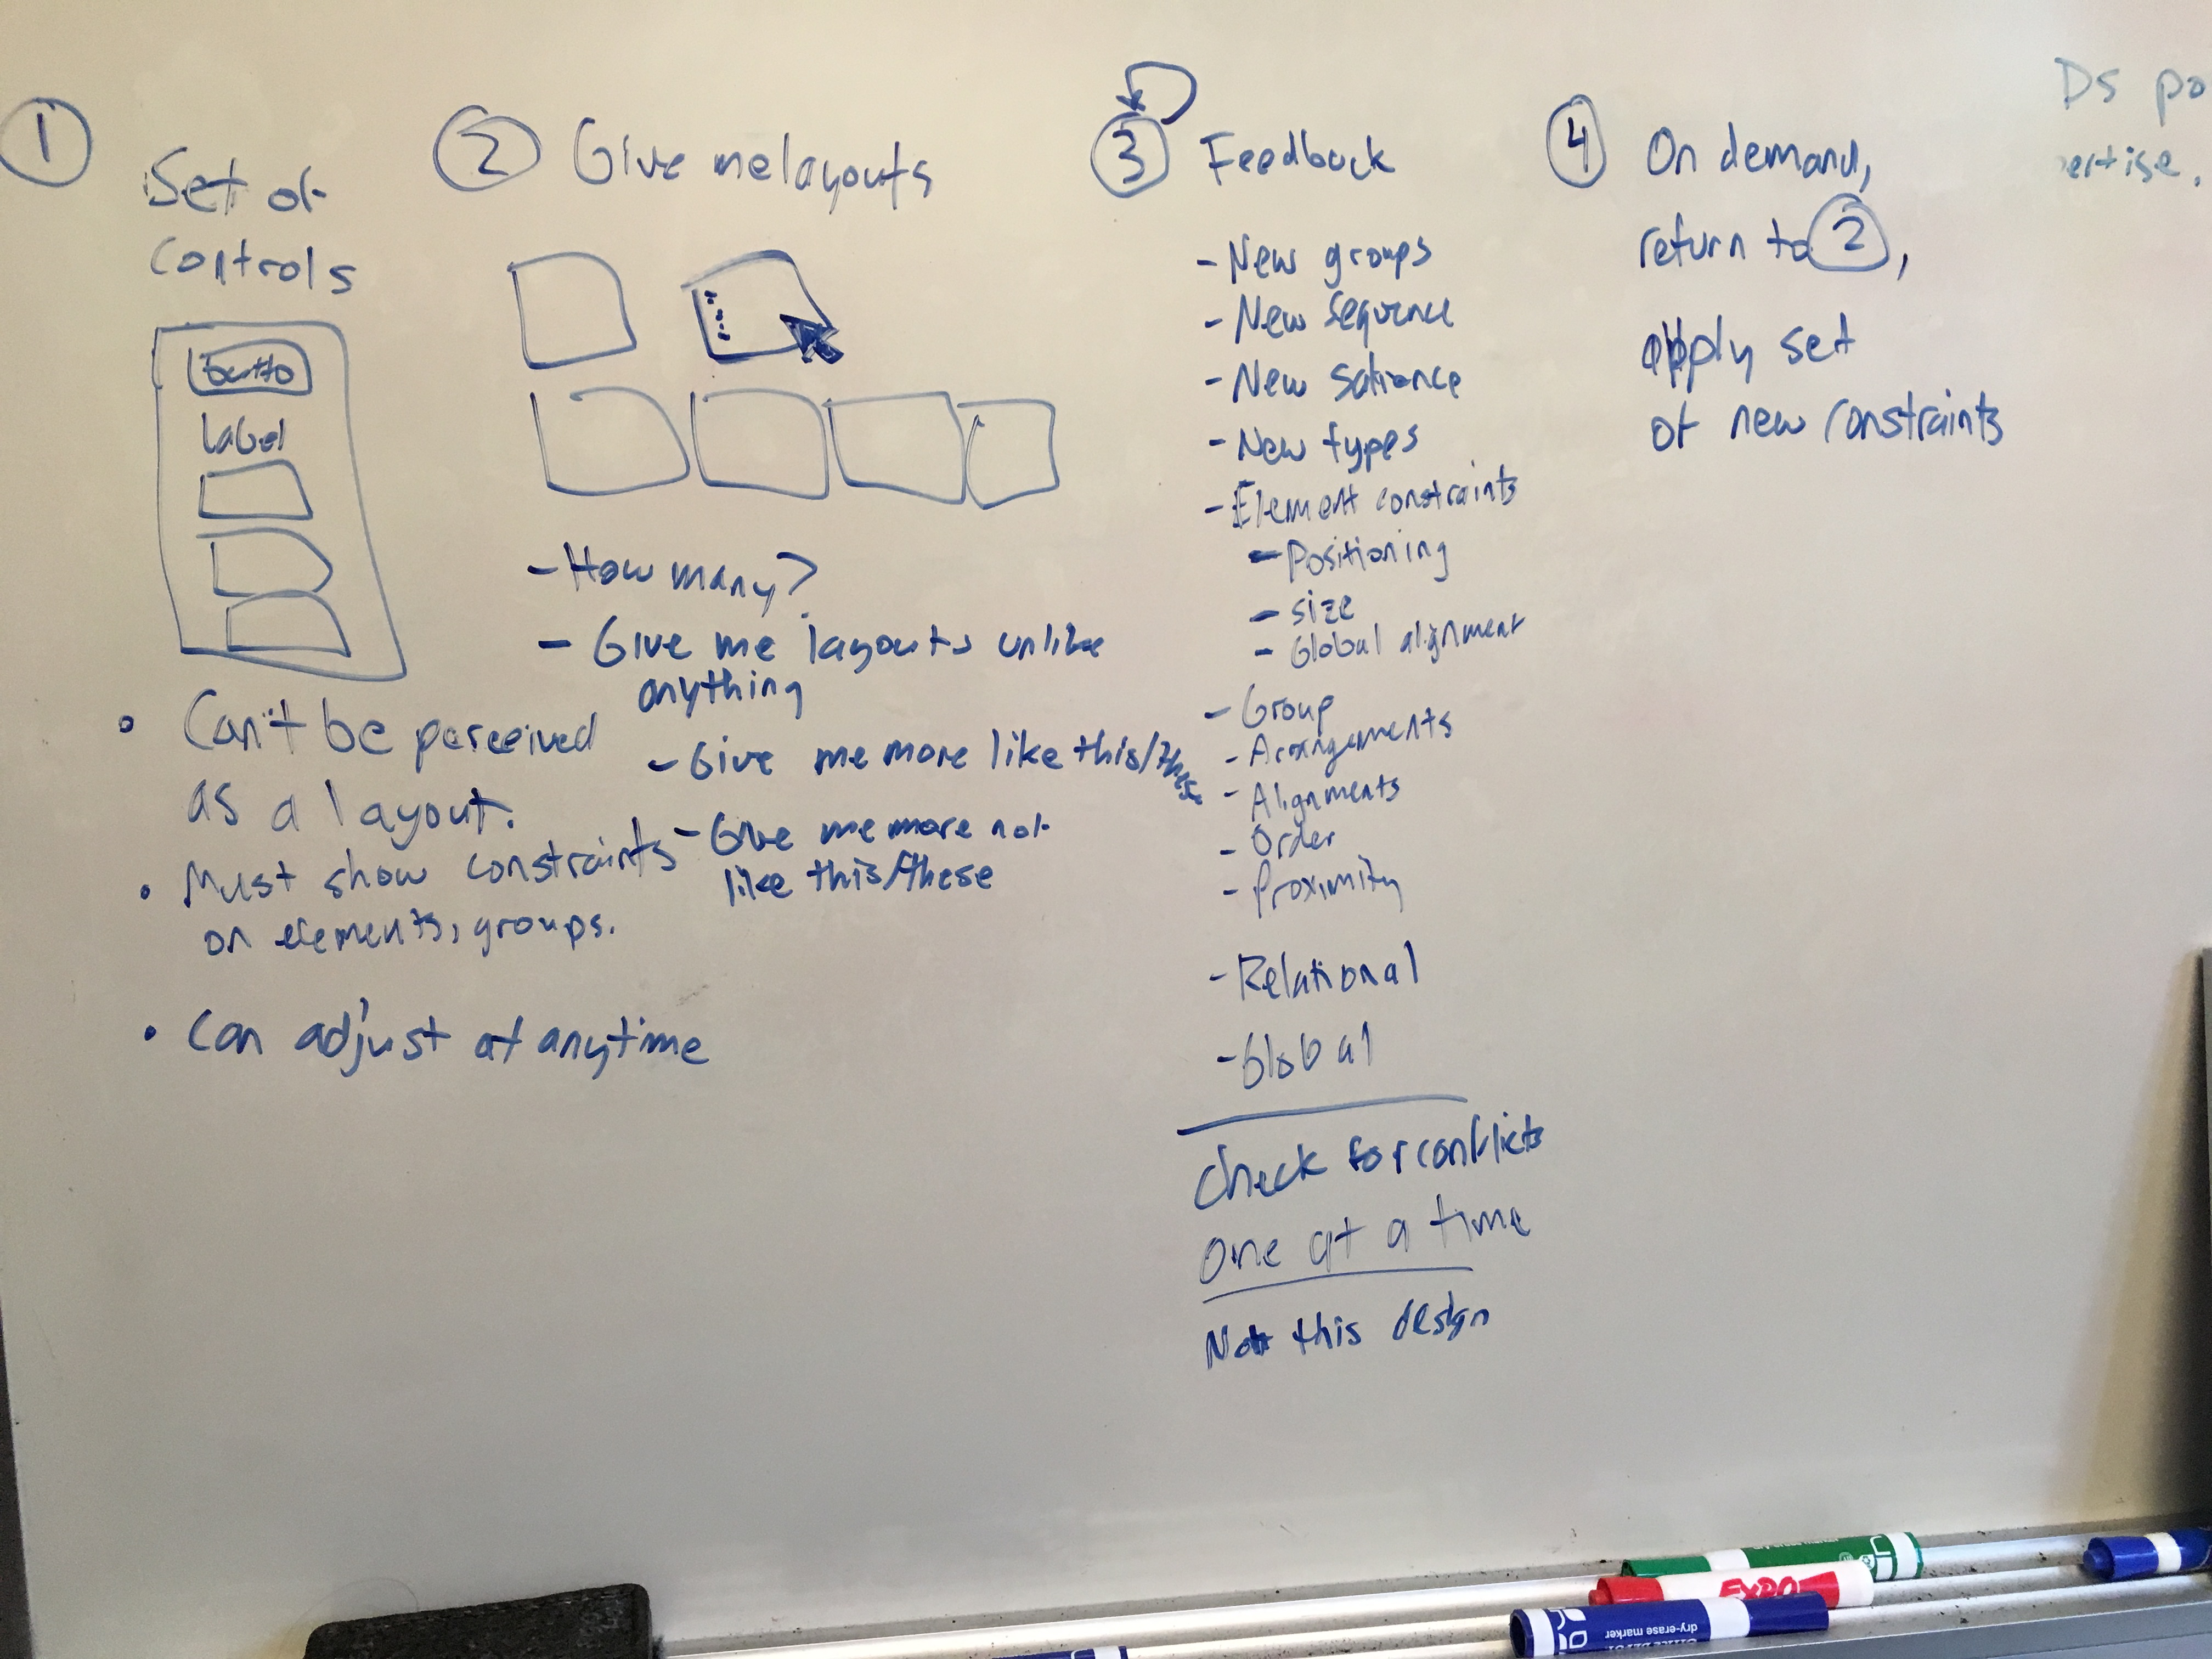 1
Set of
controls
button
label
• Can't be perceived
as a layout.
• Must show constraints
on elements, groups.
• Can adjust at anytime
2 Give me layouts
- How many?
- Give me layouts unlike
anything
- Give me more like this/these
- Give me more not
like this/these
3 Feedback
- New groups
- New sequence
- New saliance
- New types
- Element constraints
- Positioning
- size
- Global alignment
- Group
- Arrangements
- Alignments
- Order
- Proximity
- Relational
- Global
Check for conflicts
one at a time
Not this design
4 On demand,
return to 2,
apply set
of new constraints
Ds po
ertise.
EXPO
dry-erase marker